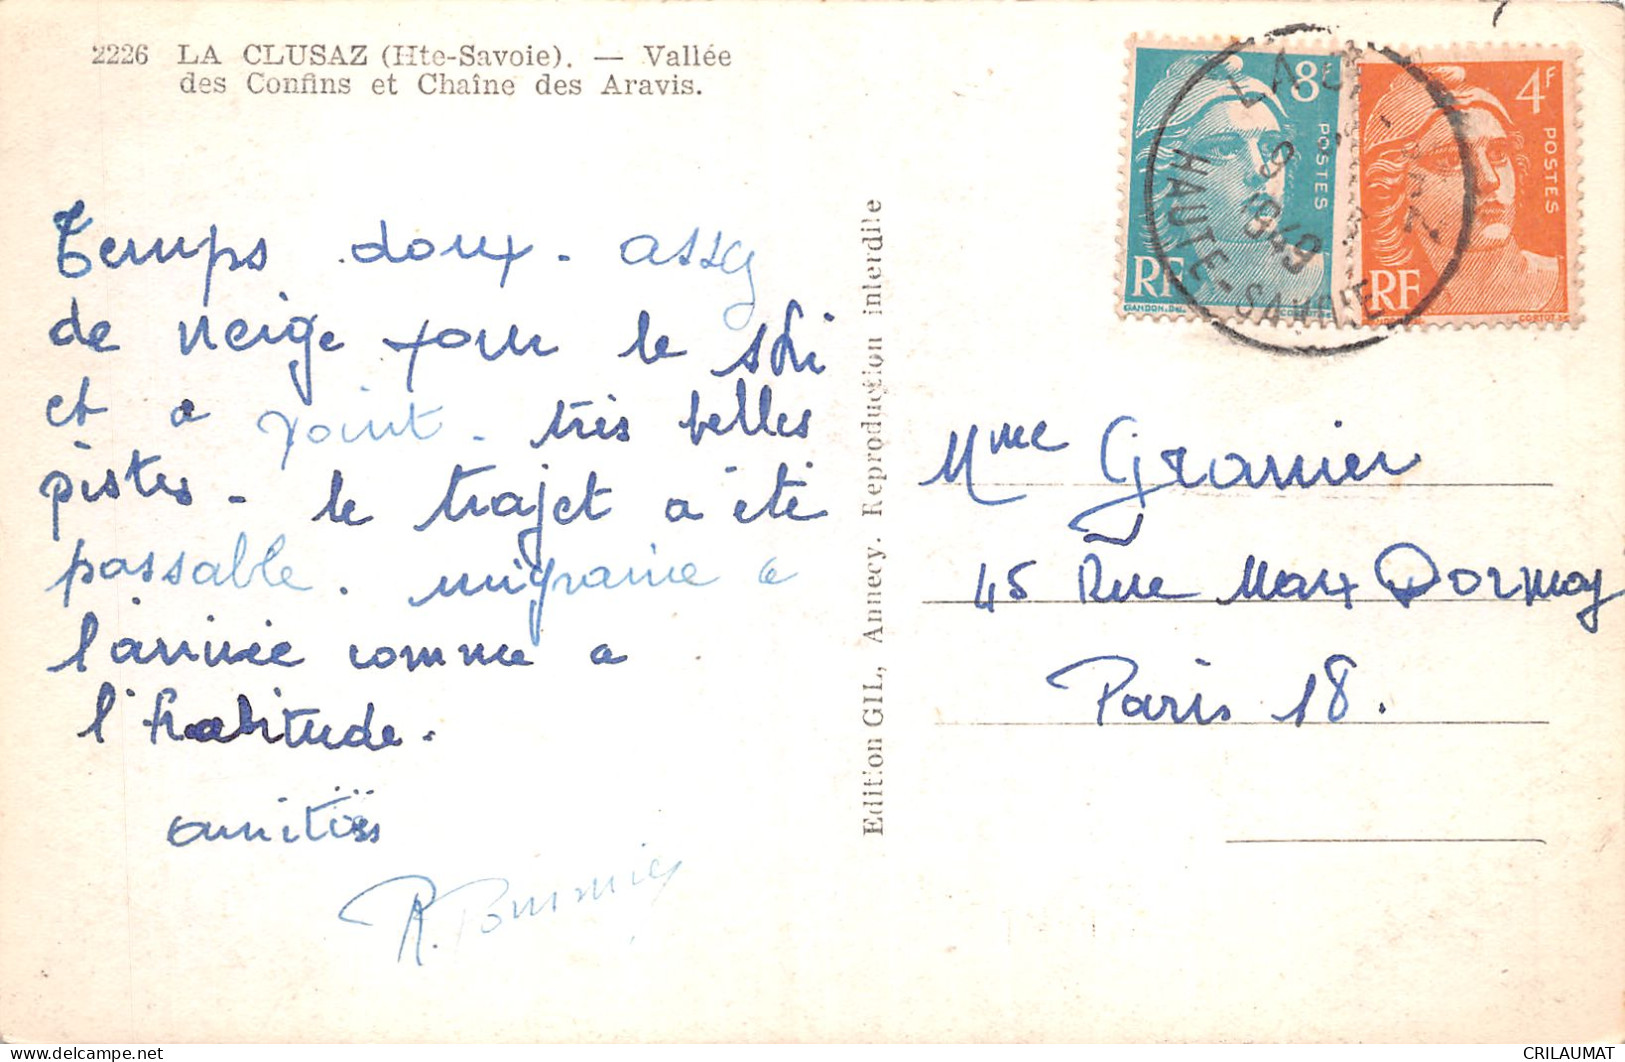 2226 LA CLUSAZ (Hte-Savoie). — Vallée
des Confins et Chaîne des Aravis.
Temps doux. assez
de neige pour le ski
et a point. très belles
pistes - le trajet a été
passable. migraine a
l'arrivée comme a
l'habitude.
amitiés
R.
Edition GIL, Annecy. Reproduction interdite
8F
POSTES
RF
GANDON.DEL.
CORTOT.SC
4F
POSTES
RF
CORTOT.SC
LA CLUSAZ
9
1949
HAUTE-SAVOIE
Mme Granier
45 Rue Marx Dormoy
Paris 18.
CRILAUMAT